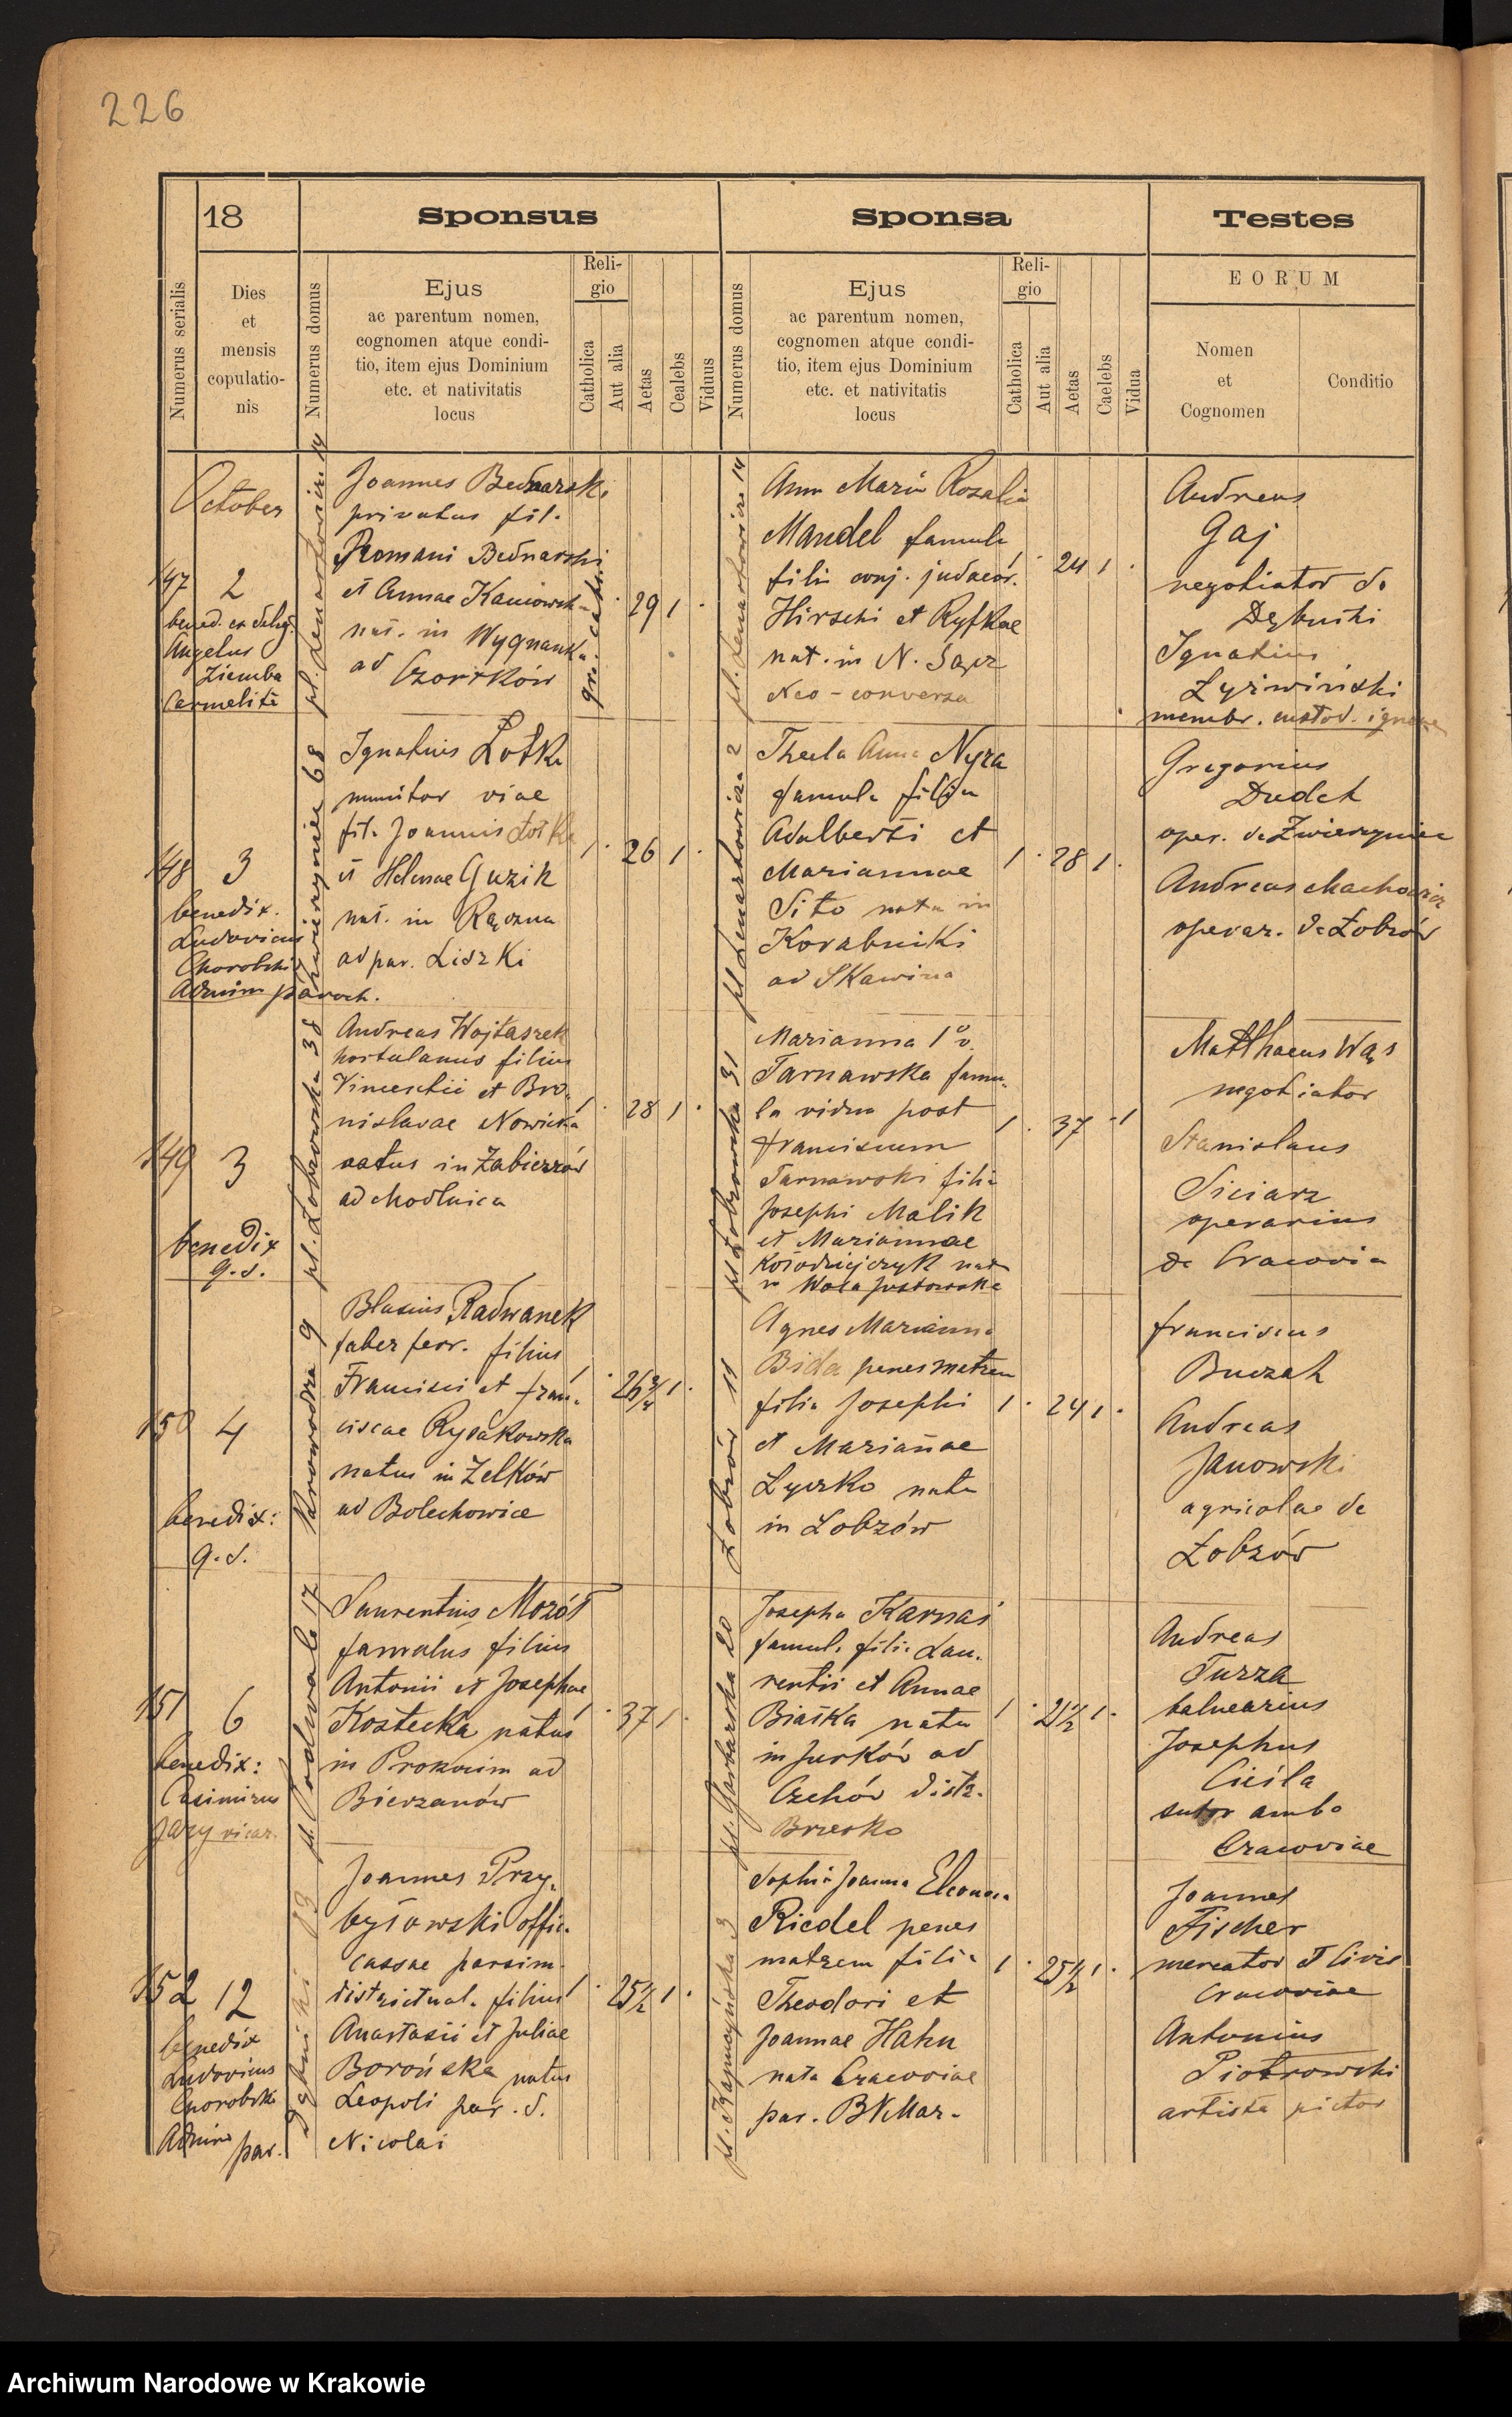 226
18
Sponsus
Sponsa
Testes
Numerus serialis
Dies
et
mensis
copulatio-
nis
Numerus domus
Ejus
ac parentum nomen,
cognomen atque condi-
tio, item ejus Dominium
etc. et nativitatis
locus
Reli-
gio
Catholica
Aut alia
Aetas
Cealebs
Viduus
Numerus domus
Ejus
ac parentum nomen,
cognomen atque condi-
tio, item ejus Dominium
etc. et nativitatis
locus
Reli-
gio
Catholica
Aut alia
Aetas
Caelebs
Vidua
EORUM
Nomen
et
Cognomen
Conditio
October
147 2
bened. ex deleg.
Angelus
Ziemba
Carmelita
pl. Lenartowicza 14
Joannes Bednarski
privatus fil.
Romani Bednarski
et Annae Kaniowsk
nat. in Wygnanka
ad Czortków
gr. cath.
29 1
pl. Lenartowicza 14
Anna Maria Rosalia
Mandel famula
filia conj. judaeor.
Hirschi et Ryfkae
nat. in N. Sącz
Neo-conversa
24 1
Andreas
Gaj
negotiator de
Dębniki
Ignatius
Lyżwiński
membr. custod.
148 3
benedix.
Ludovicus
Chorobski
Admin paroch.
Zwierzyniec 68
Ignatius Lotka
munitor viae
fil. Joannis Lotka
et Helenae Guzik
nat. in Rączna
ad par. Liszki
1 26 1
pl. Lenartowicza 2
Thecla Anna Nyza
famula filia
Adalberti et
Mariannae
Sito nata in
Korabniki
ad Skawina
1 28 1
Gregorius
Dudek
oper. de Zwierzyniec
Andreas
operar. de Łobzów
149 3
benedix
q. s.
pl. Łobzowska 38
Andreas Wojtaszek
hortulanus filius
Vincentii et Bro-
nislavae Nowicka
natus in Zabierzów
ad Modlnica
1 28 1
pl. Łobzowska 31
Marianna 1º v.
Tarnawska famu-
la vidua post
Franciscum
Tarnawski filia
Josephi Malik
et Mariannae
Kołodziejczyk nat
in Wola Justowska
1 37 1
Matthaeus Wąs
negotiator
Stanislaus
Siciarz
operarius
de Cracovia
150 4
benedix:
q. s.
Krowodrza 9
Blasius Radwanek
faber ferr. filius
Francisci et Fran-
ciscae Rysakowska
natus in Zelków
ad Bolechowice
1 26 3/4 1
Łobzów 11
Agnes Marianna
Bida penes matrem
filia Josephi
et Mariañae
Lyczko nata
in Lobzów
1 24 1
Franciscus
Buczek
Andreas
Janowski
agricolae de
Łobzów
151 6
benedix:
Casimirus
vicar.
pl. Podwale 17
Laurentius Mozół
famulus filius
Antonii et Josephae
Kostecka natus
in Prokocim ad
Bierzanów
1 37 1
pl. Garbarska 20
Josepha Karnaś
famul. filia Lau-
rentii et Annae
Białka nata
in Jurków ad
Czchów distr.
Brzesko
1 21 1/2 1
Andreas
Turza
balnearius
Josephus
Cieśla
sutor ambo
Cracoviae
152 12
benedix
Ludovicus
Chorobski
Admin par.
Dębniki
Joannes Przy-
byłowski offic.
cassae parsim.
districtual. filius
Anastasii et Juliae
Borońska natus
Leopoli par. S.
Nicolai
1 25 1/2 1
pl. Kapucyńska 3
Sophia Joanna Eleonora
Riedel penes
matrem filia
Theodori et
Joannae Hahn
nata Cracoviae
par. BVMar.
1 25 1/2 1
Joannes
Fischer
mercator et Civis
Cracoviae
Antonius
Piotrowski
artista pictor
Archiwum Narodowe w Krakowie